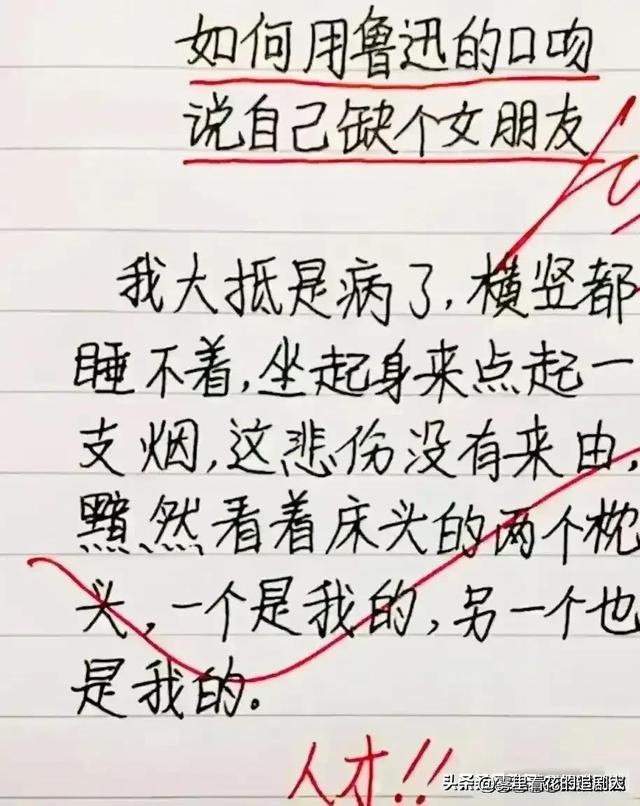 如何用鲁迅的口吻
说自己缺个女朋友
我大抵是病了,横竖都
睡不着,坐起身来点起一
支烟,这悲伤没有来由,
黯然看着床头的两个枕
头,一个是我的,另一个也
是我的。
人才!!
头条@雾里看花的追剧人